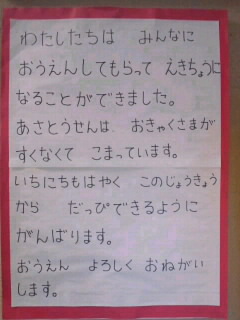 わたしたちは みんなに
おうえんしてもらって えきちょうに
なることができました。
あさとうせんは、 おきゃくさまが
すくなくて こまっています。
いちにちもはやく このじょうきょう
から だっぴできるように
がんばります。
おうえん よろしく おねがい
します。